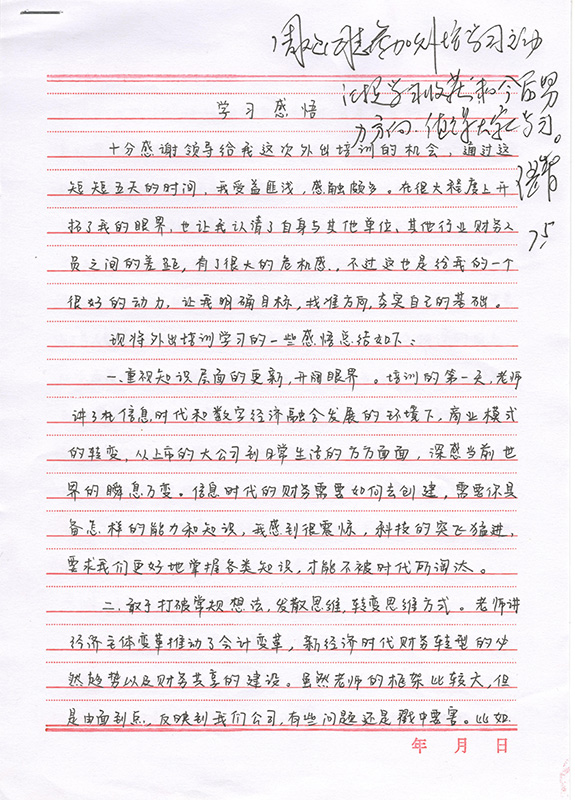 参加外培学习主动
汇报学习收获和今后努
力方向，值得大家学习。
学习感悟
十分感谢领导给我这次外出培训的机会，通过这
短短五天的时间，我受益匪浅，感触颇多。在很大程度上开
拓了我的眼界，也让我认清了自身与其他单位、其他行业财务人
员之间的差距，有了很大的危机感，不过这也是给我的一个
很好的动力，让我明确目标，找准方向，夯实自己的基础。
现将外出培训学习的一些感悟总结如下：
一、重视知识层面的更新，开阔眼界。培训的第一天，老师
讲了在信息时代和数字经济融合发展的环境下，商业模式
的转变，从上市的大公司到日常生活的方方面面，深感当前世
界的瞬息万变。信息时代的财务需要如何去创建，需要你具
备怎样的能力和知识，我感到很震惊，科技的突飞猛进，
要求我们更好地掌握各类知识，才能不被时代所淘汰。
二、敢于打破常规想法，发散思维，转变思维方式。老师讲
经济主体变革推动了会计变革，新经济时代财务转型的必
然趋势以及财务共享的建设。虽然老师的框架比较大，但
是由面到点，反映到我们公司，有些问题还是戳中要害。比如
年 月 日